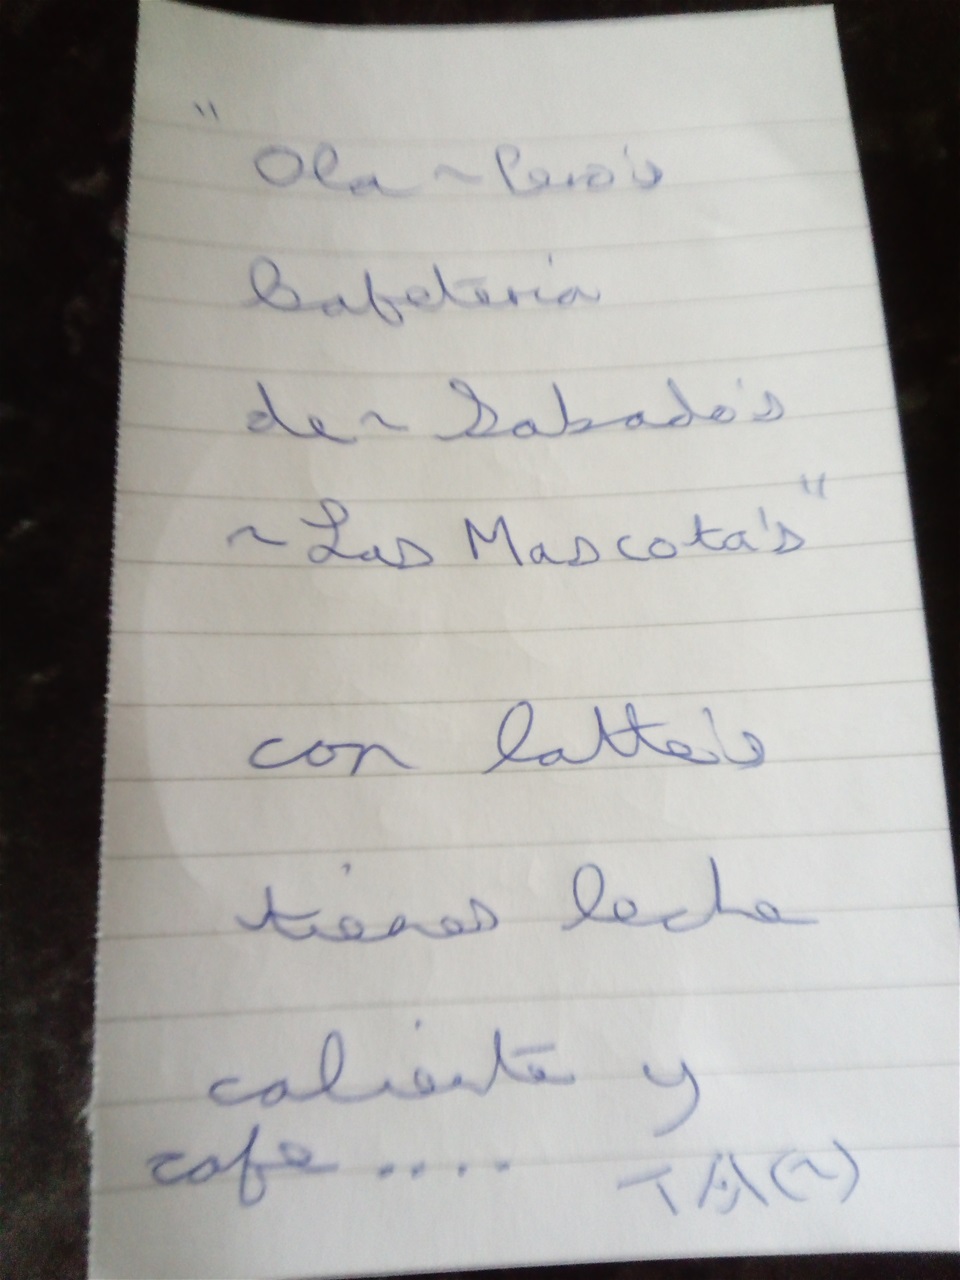 "Ola ~ Pero's
Cafeteria
de ~ Sabado's
~ Las Mascota's"
con latte's
tienes leche
caliente y
cafe ....
TA(~)